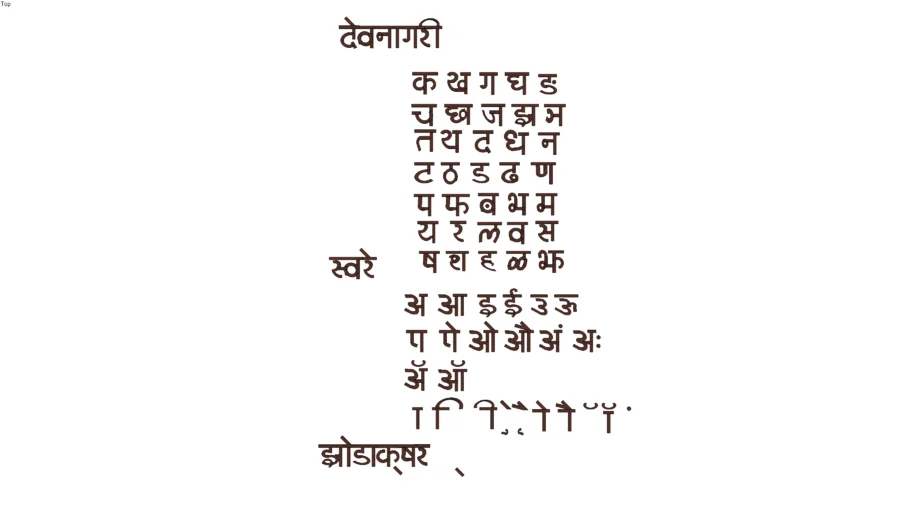 Top
देवनागरी
क ख ग घ ङ
च छ ज झ ञ
त थ द ध न
ट ठ ड ढ ण
प फ ब भ म
य र ल व स
स्वरे
ष श ह ळ झ
अ आ इ ई उ ऊ
ए ऐ ओ औ अं अः
ॲ ऑ
ा ि ी ु ू े ै ो ौ ॅ ॉ ं
झोडाक्षर ्